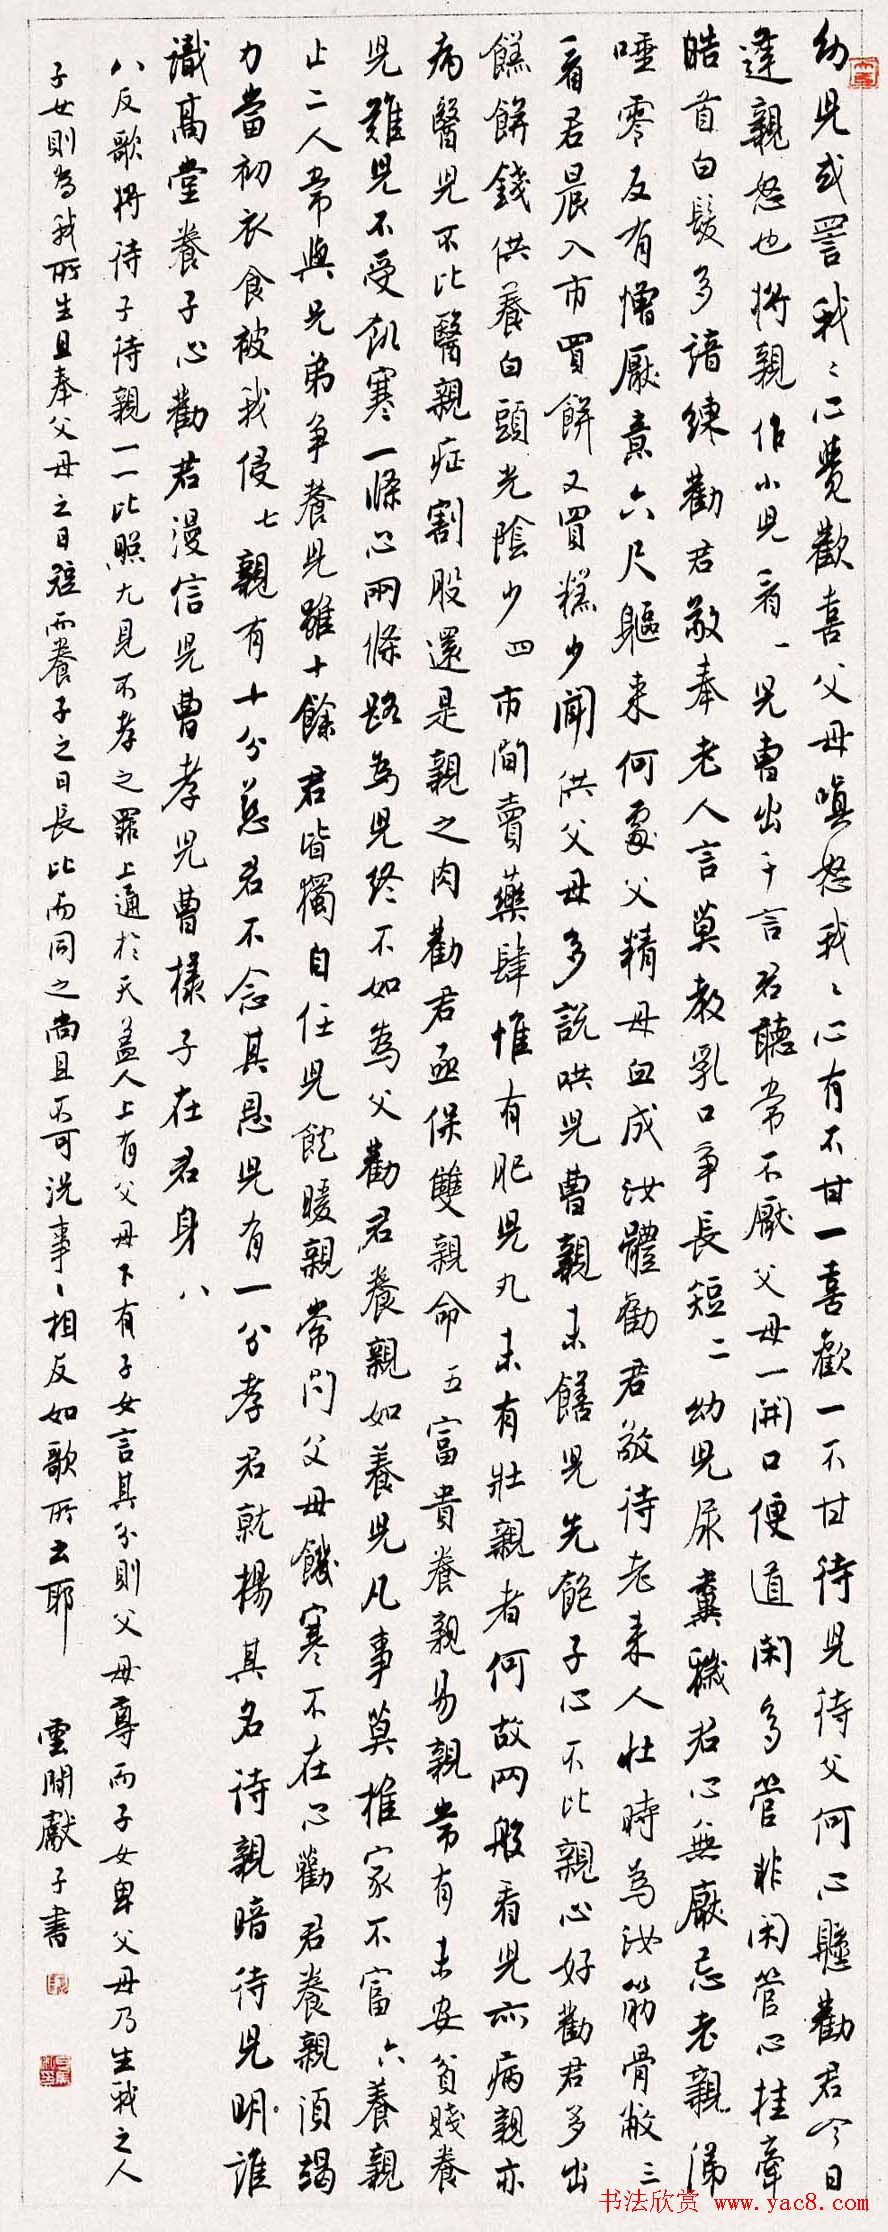 幼兒或詈我〻心覺歡喜父母嗔怒我〻心有不甘一喜歡一不甘待兒待父何心懸勸君今日
逢親怒也將親作小兒看一兒曹出千言君聽常不厭父母一開口便道閑多管非閑管心挂牽
皓首白髮多諳練勸君敬奉老人言莫教乳口爭長短二幼兒尿糞穢君心無厭忌老親涕
唾零反有憎厭意六尺軀來何處父精母血成汝體勸君敬待老來人壯時為汝筋骨敝三
看君晨入市買餅又買糕少聞供父母多說哄兒曹親未饍兒先飽子心不比親心好勸君多出
糕餅錢供養白頭光陰少四市間賣藥肆惟有肥兒丸未有壯親者何故兩般看兒亦病親亦
病醫兒不比醫親症割股還是親之肉勸君亟保雙親命五富貴養親易親常有未安貧賤養
兒難兒不受飢寒一條心兩條路為兒終不如為父勸君養親如養兒凡事莫推家不富六養親
止二人常與兄弟爭養兒雖十餘君皆獨自任兒飽暖親常問父母饑寒不在心勸君養親須竭
力當初衣食被我侵七親有十分慈君不念其恩兒有一分孝君就揚其名待親暗待兒明誰
識高堂養子心勸君漫信兒曹孝兒曹樣子在君身八
八反歌將待子待親一一比照尤見不孝之罪上通於天蓋人上有父母下有子女言其分則父母尊而子女卑父母乃生我之人
子女則為我所生且奉父母之日短而養子之日長比而同之尚且不可況事〻相反如歌所云耶
雲間獻子書
书法欣赏 www.yac8.com